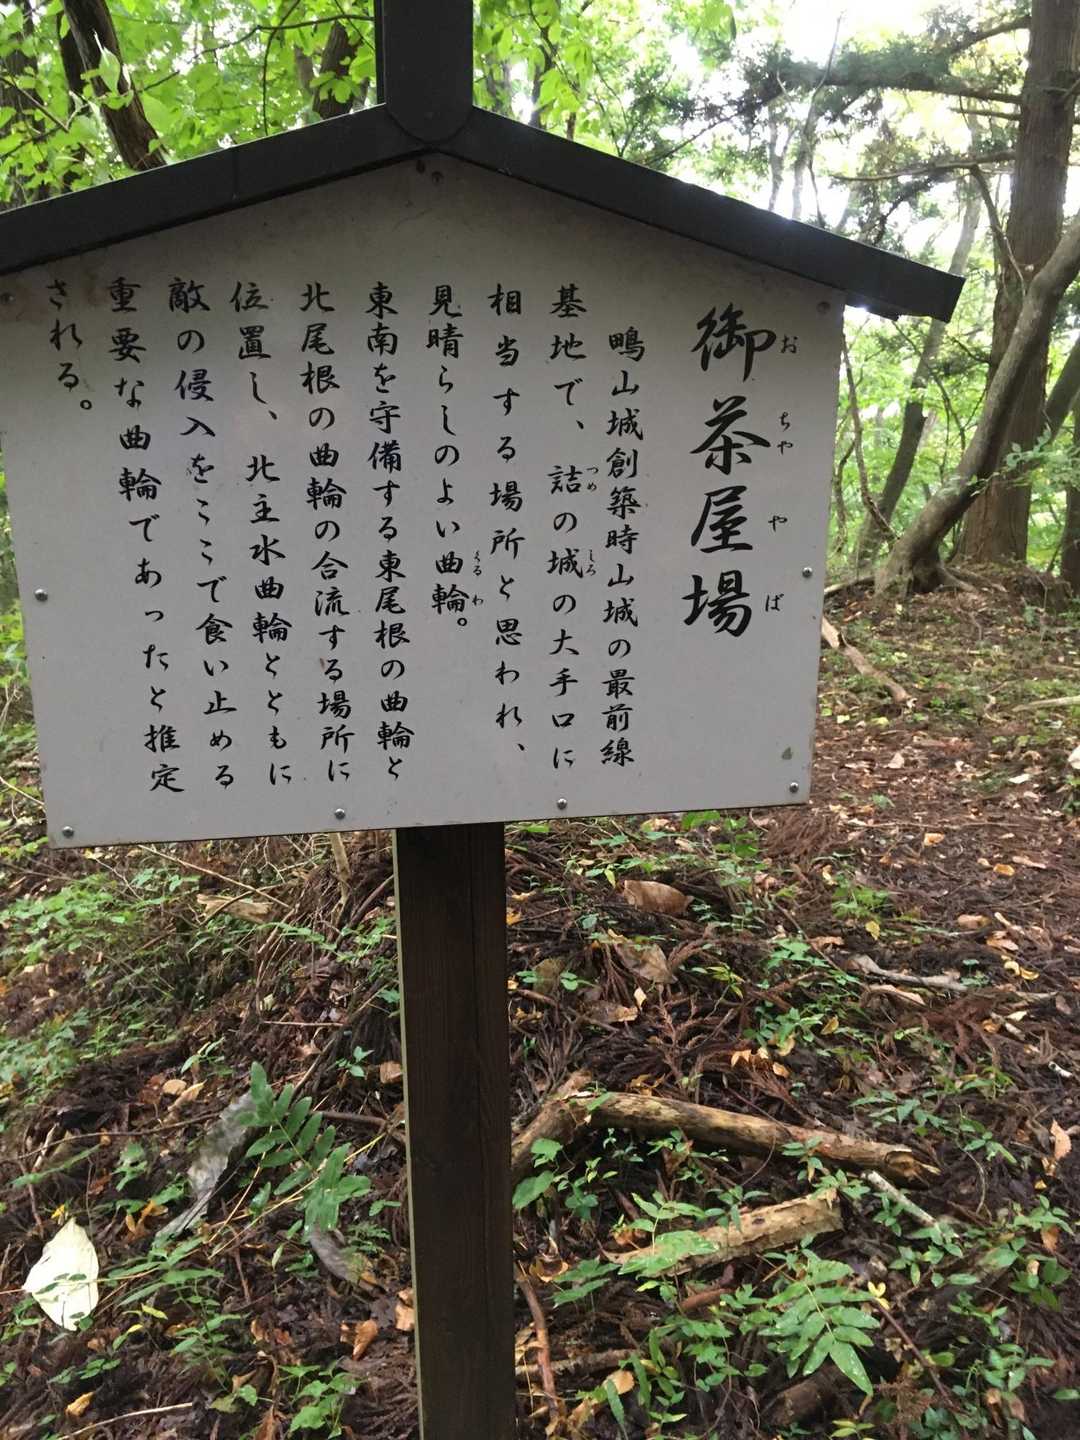 御茶屋場
おちややば
鴫山城創築時山城の最前線
基地で、詰の城の大手口に
つめ
しろ
相当する場所と思われ、
見晴らしのよい曲輪。
くるわ
東南を守備する東尾根の曲輪と
北尾根の曲輪の合流する場所に
位置し、北主水曲輪とともに
敵の侵入をここで食い止める
重要な曲輪であったと推定
される。